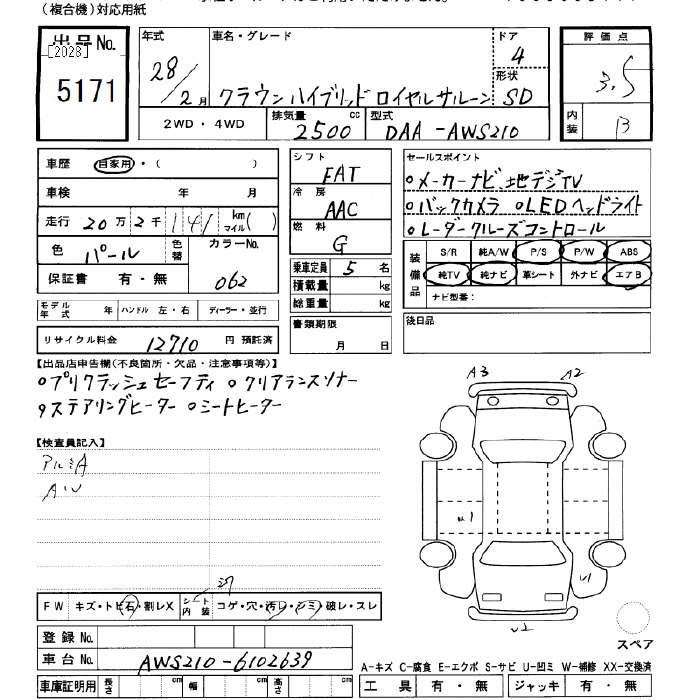 (複合機)対応用紙
出品No.
[2028]
5171
年式
28/2月
車名・グレード
クラウンハイブリッド ロイヤルサルーン
ドア
4
形状
SD
評価点
3.5
内装
B
2WD・4WD
排気量
2500 cc
型式
DAA-AWS210
車歴 自家用・( )
車検 年 月
走行 20万2千141 km マイル( )
色 パール 色替
カラーNo. 062
保証書 有・無
シフト
FAT
冷房
AAC
燃料
G
乗車定員 5 名
積載量 kg
総重量 kg
セールスポイント
○メーカーナビ、地デジTV
○バックカメラ ○LEDヘッドライト
○レーダークルーズコントロール
装備品 S/R 純A/W P/S P/W ABS
純TV 純ナビ 革シート 外ナビ エアB
ナビ型番:
モデル年式 年 ハンドル 左・右 ディーラー・並行
リサイクル料金 12710 円 預託済
書類期限
月 日
後日品
【出品店申告欄(不良箇所・欠品・注意事項等)】
○プリクラッシュセーフティ ○クリアランスソナー
○ステアリングヒーター ○シートヒーター
【検査員記入】
アルミA
A・U
A3 A2
u1
u1
u2
FW キズ・トビ石・割レX シート内装 コゲ・穴・汚レ・シミ・破レ・スレ
登録No.
車台No. AWS210-6102639
車庫証明用 長さ cm 幅 cm 高さ cm
スペア
A-キズ C-腐食 E-エクボ S-サビ U-凹ミ W-補修 XX-交換済
工具 有・無 ジャッキ 有・無